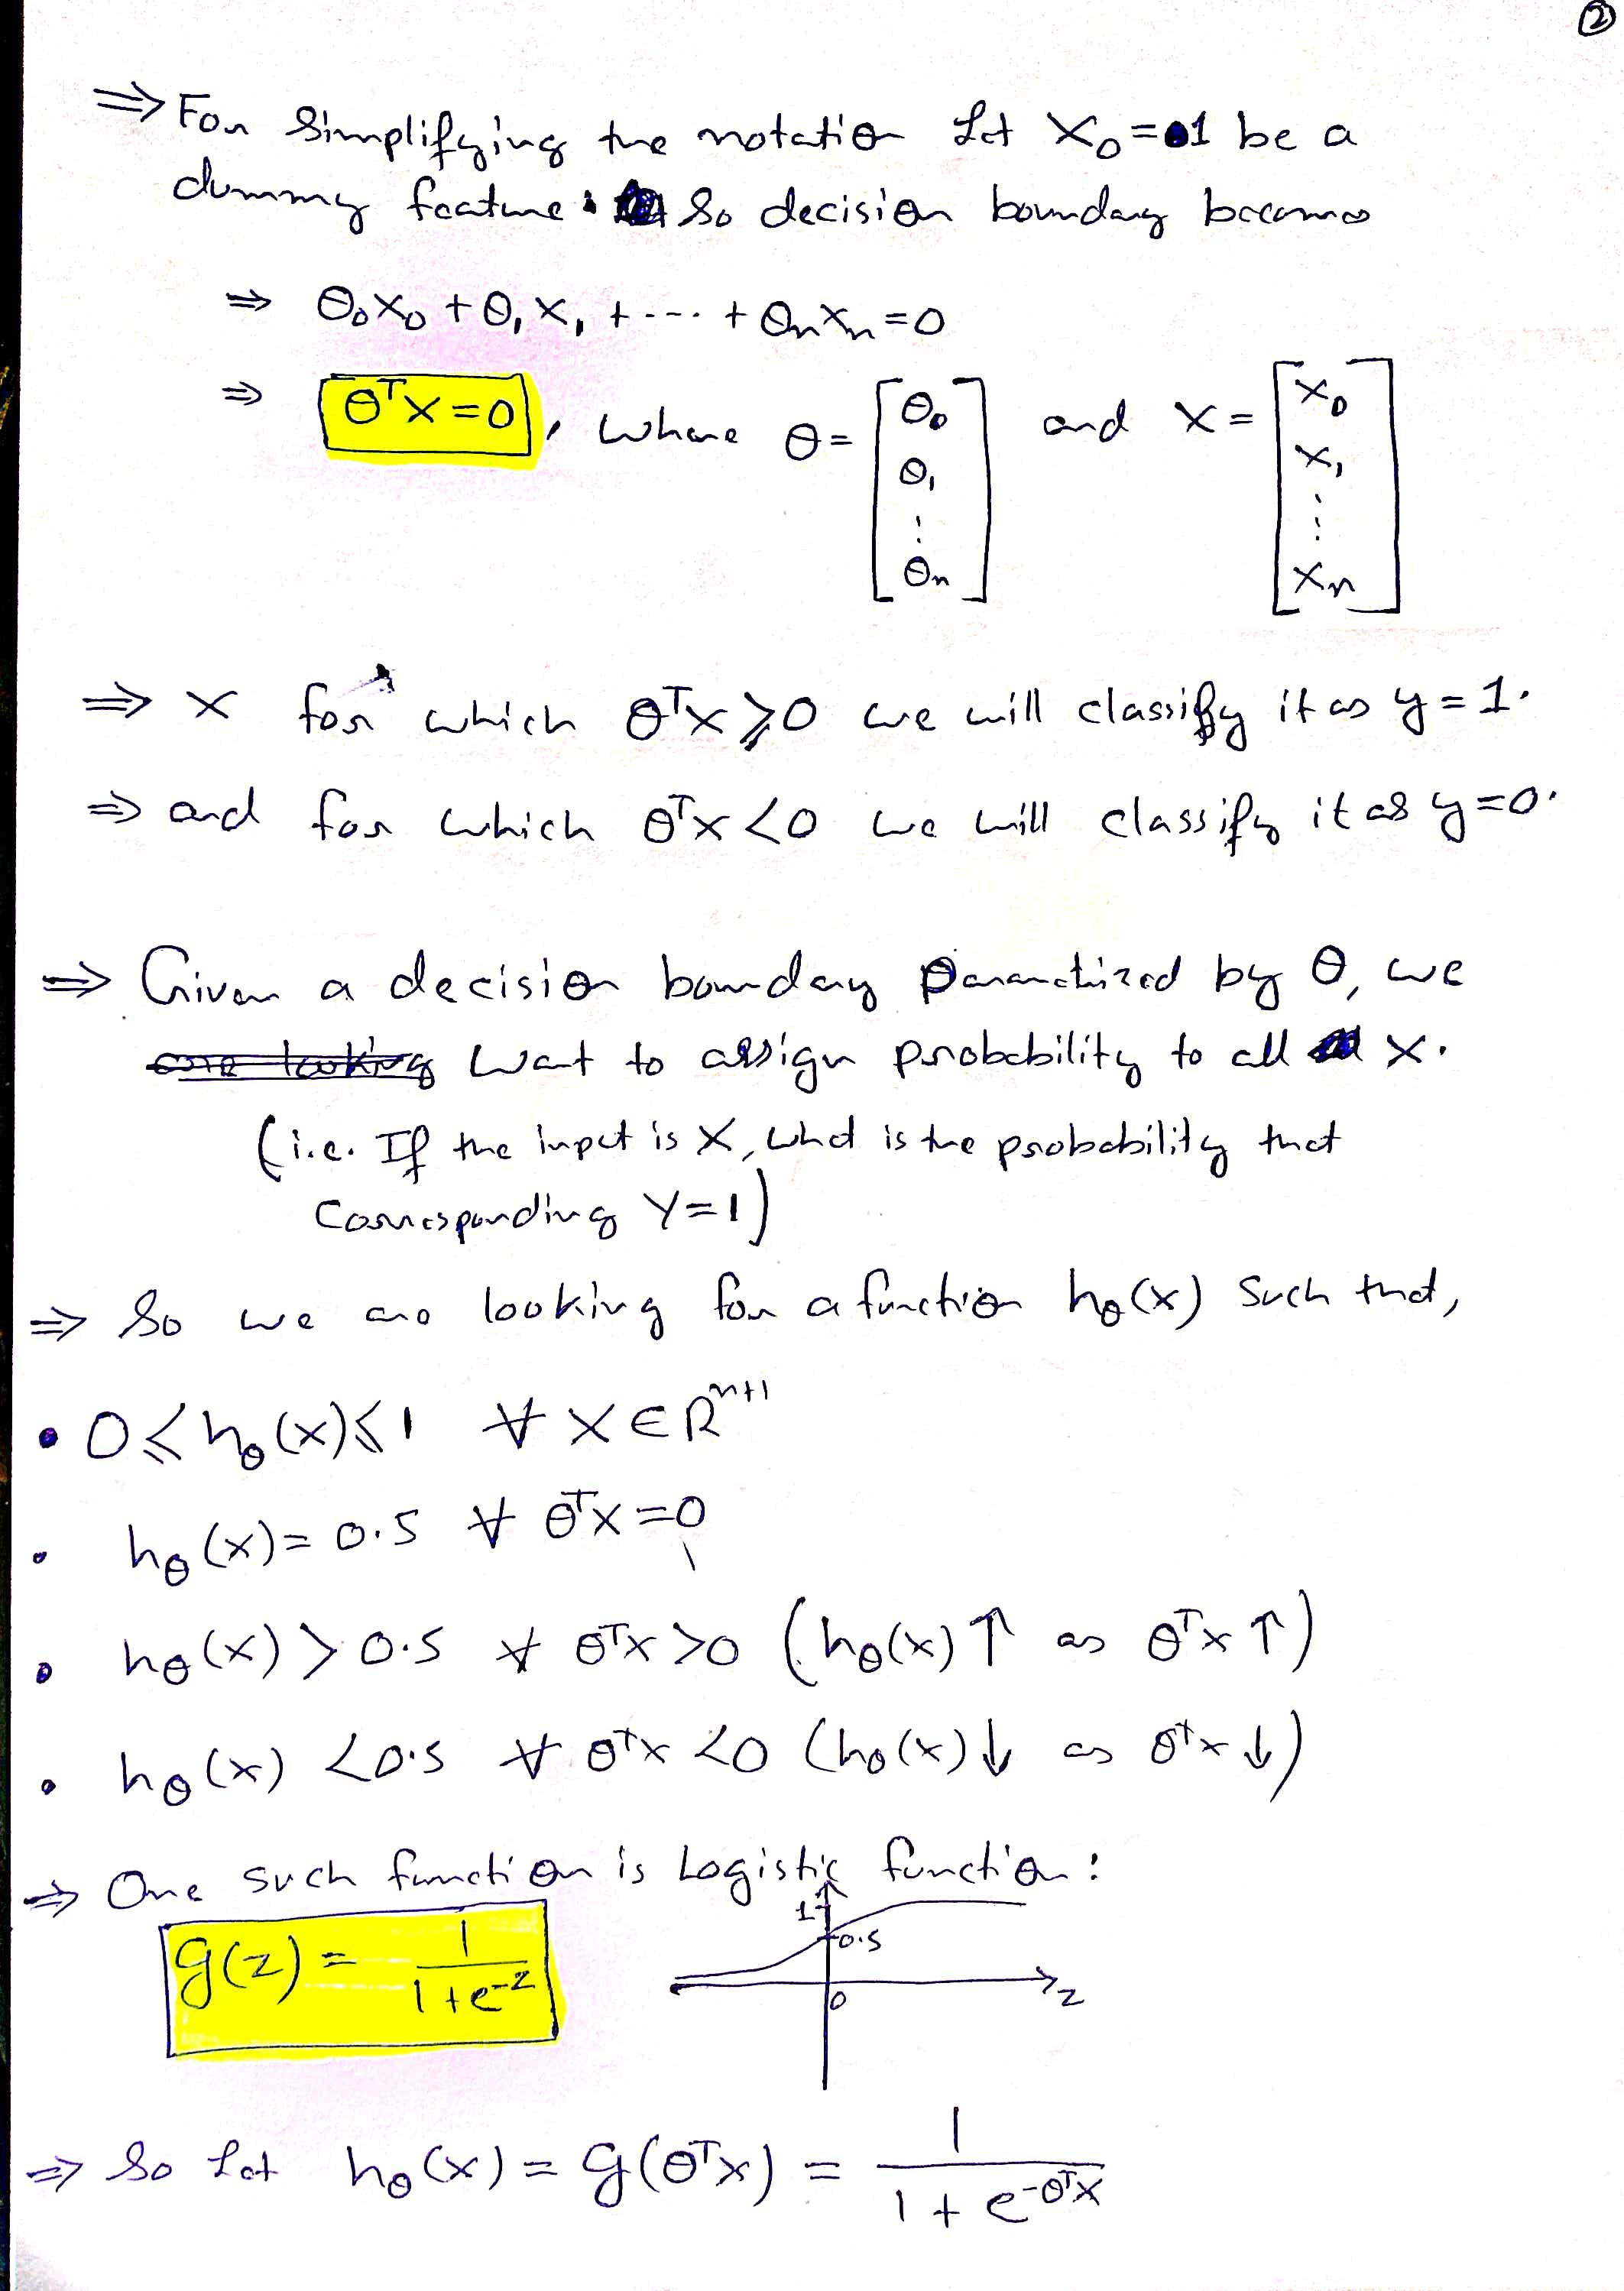 ②
⇒ For Simplifying the notation Let X₀=1 be a
dummy feature. So decision boundary becomes
⇒ θ₀X₀ + θ₁X₁ + ---- + θₙXₙ = 0
⇒ θᵀX = 0, where θ = [θ₀ θ₁ ⋮ θₙ] and X = [X₀ X₁ ⋮ Xₙ]
⇒ X for which θᵀX ⩾ 0 we will classify it as y = 1.
⇒ and for which θᵀX < 0 we will classify it as y = 0.
⇒ Given a decision boundary parametrized by θ, we
are looking want to assign probability to all X.
(i.e. If the input is X, what is the probability that
Corresponding Y=1)
⇒ So we are looking for a function hθ(x) Such that,
• 0 ⩽ hθ(x) ⩽ 1 ∀ X ∈ Rⁿ⁺¹
• hθ(x) = 0.5 ∀ θᵀX = 0
• hθ(x) > 0.5 ∀ θᵀX > 0 (hθ(x) ↑ as θᵀX ↑)
• hθ(x) < 0.5 ∀ θᵀX < 0 (hθ(x) ↓ as θᵀX ↓)
⇒ One such function is Logistic function:
g(z) = 1 / (1 + e⁻ᶻ)
1
0.5
0
z
⇒ So Let hθ(x) = g(θᵀx) = 1 / (1 + e^(-θᵀx))